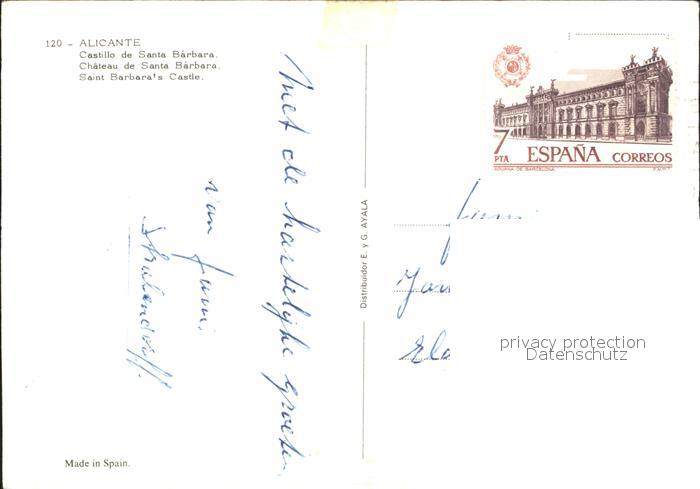 120 - ALICANTE
Castillo de Santa Bárbara.
Château de Santa Bárbara.
Saint Barbara's Castle.
Met de hartelijke groeten
van fam.
Made in Spain.
Distribuidor E. y G. AYALA
7 PTA ESPAÑA CORREOS
ADUANA DE BARCELONA F.N.M.T.
privacy protection
Datenschutz